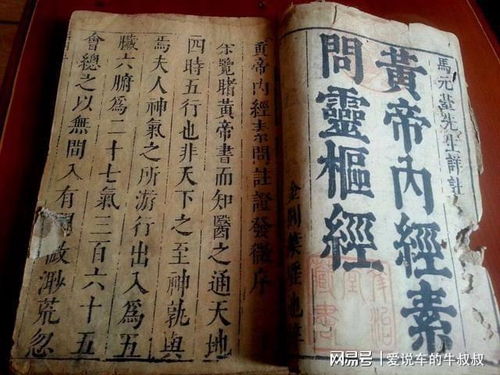 馬元臺先生詳註
黃帝內經素
問靈樞經
黃帝內經素問註證發微序
余覽睹黃帝書而知醫之通天地
四時五行也非天下之至神孰與
焉夫人神氣之所游行出入爲五
臟六腑爲二十七氣三百六十五
會總之以無間入有間微渺荒忽
搜狐号@爱说车的牛叔叔